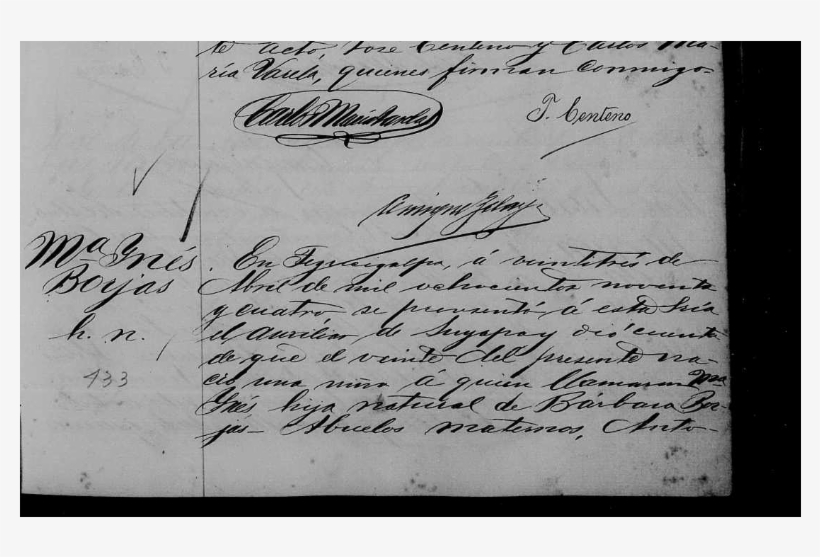 te acto, José Centeno y Carlos Ma-
ría Varela, quienes firman conmigo-
J. Centeno
Mª Inés
Borjas
h. n.
433
En Tegucigalpa, á veintitrés de
Abril de mil ochocientos noventa
y cuatro se presentó á esta Sría
el auxiliar de Suyapa y dió cuenta
de que el veinte del presente na-
ció una niña á quien llamaran Mª
Inés, hija natural de Bárbara Bor-
jas- Abuelos maternos, Anto-